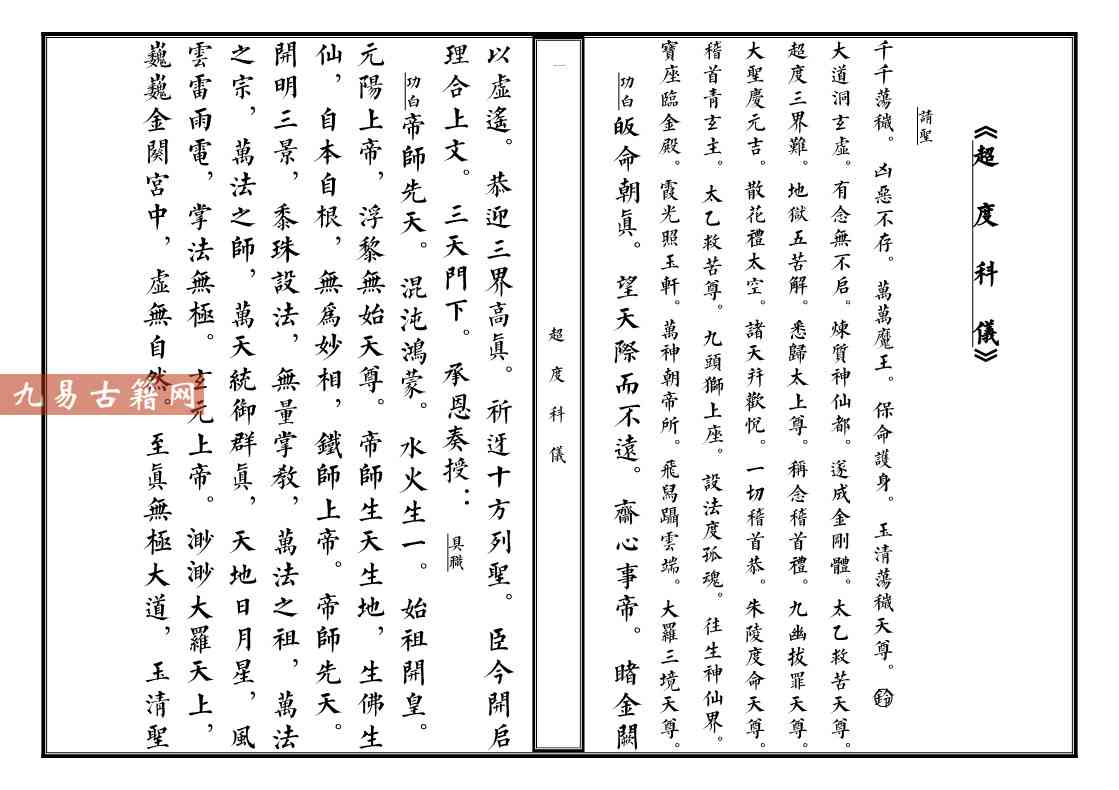 《超度科儀》
請聖
千千蕩穢。凶惡不存。萬萬魔王。保命護身。玉清蕩穢天尊。
大道洞玄虛。有念無不启。煉質神仙都。遂成金剛體。太乙救苦天尊。
超度三界難。地獄五苦解。悉歸太上尊。稱念稽首禮。九幽拔罪天尊。
大聖慶元吉。散花禮太空。諸天幷歡悅。一切稽首恭。朱陵度命天尊。
稽首青玄主。太乙救苦尊。九頭獅上座。設法度孤魂。往生神仙界。
寶座臨金殿。霞光照玉軒。萬神朝帝所。飛舄躡雲端。大羅三境天尊。
功白皈命朝眞。望天際而不遠。齋心事帝。睹金闕
一
超度科儀
以虛遙。恭迎三界高眞。祈迓十方列聖。臣今開启
理合上文。三天門下。承恩奏授：具職
功白帝師先天。混沌鴻蒙。水火生一。始祖開皇。
元陽上帝，浮黎無始天尊。帝師生天生地，生佛生
仙，自本自根，無爲妙相，鐵師上帝。帝師先天。
開明三景，黍珠設法，無量掌教，萬法之祖，萬法
之宗，萬法之師，萬天統御群眞，天地日月星，風
雲雷雨電，掌法無極。玄元上帝。渺渺大羅天上，
巍巍金闕宮中，虛無自然。至眞無極大道，玉清聖
九易古籍网